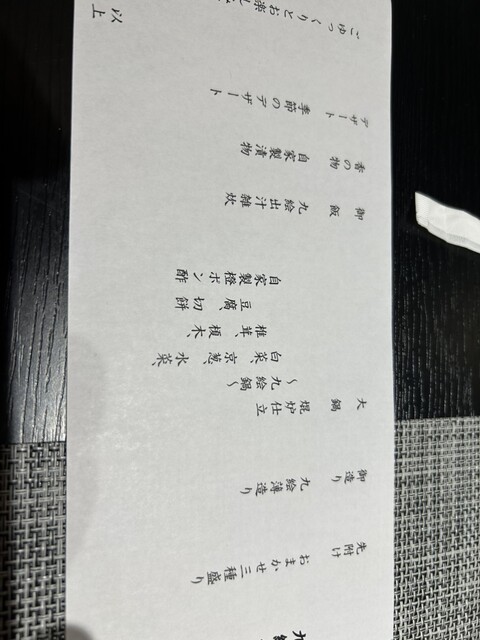 九
先附け
おまかせ三種盛り
御造り
九絵薄造り
大鍋
焜炉仕立
〜九絵鍋〜
白菜、京葱、水菜、
椎茸、榎木、
豆腐、切餅
自家製橙ポン酢
御飯
九絵出汁雑炊
香の物
自家製漬物
デザート
季節のデザート
ごゆっくりとお楽し
以上